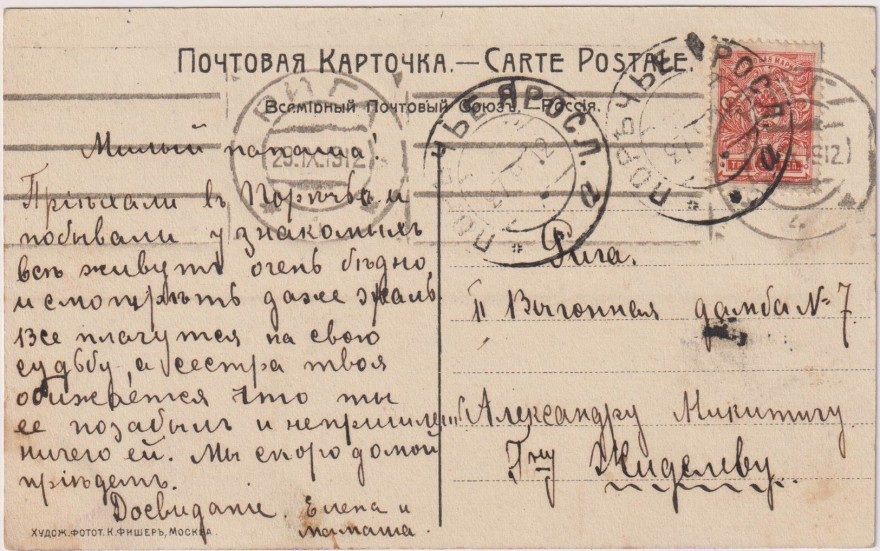 Почтовая Карточка. — Carte Postale.
Всемірный Почтовый Союзъ. Россія.
РИГА
29.IX.1912
ПОРѢЧЬЕ ЯРОСЛ. Г.
ПОРѢЧЬЕ ЯРОСЛ. Г.
Милый папаша!
Пріѣхали въ Порѣчье и
побывали у знакомыхъ
всѣ живутъ очень бѣдно,
и смотрѣть даже жаль.
Все плачутся на свою
судьбу, а сестра твоя
обижается что ты
ее позабылъ и непришлешь
ничего ей. Мы скоро домой
пріѣдемъ.
Досвиданіе. Елена и
мамаша.
Рига.
II Выгонная дамба № 7
Александру Никитичу
Гну Жиделеву
ХУДОЖ. ФОТОТ. К. ФИШЕРЪ, МОСКВА.